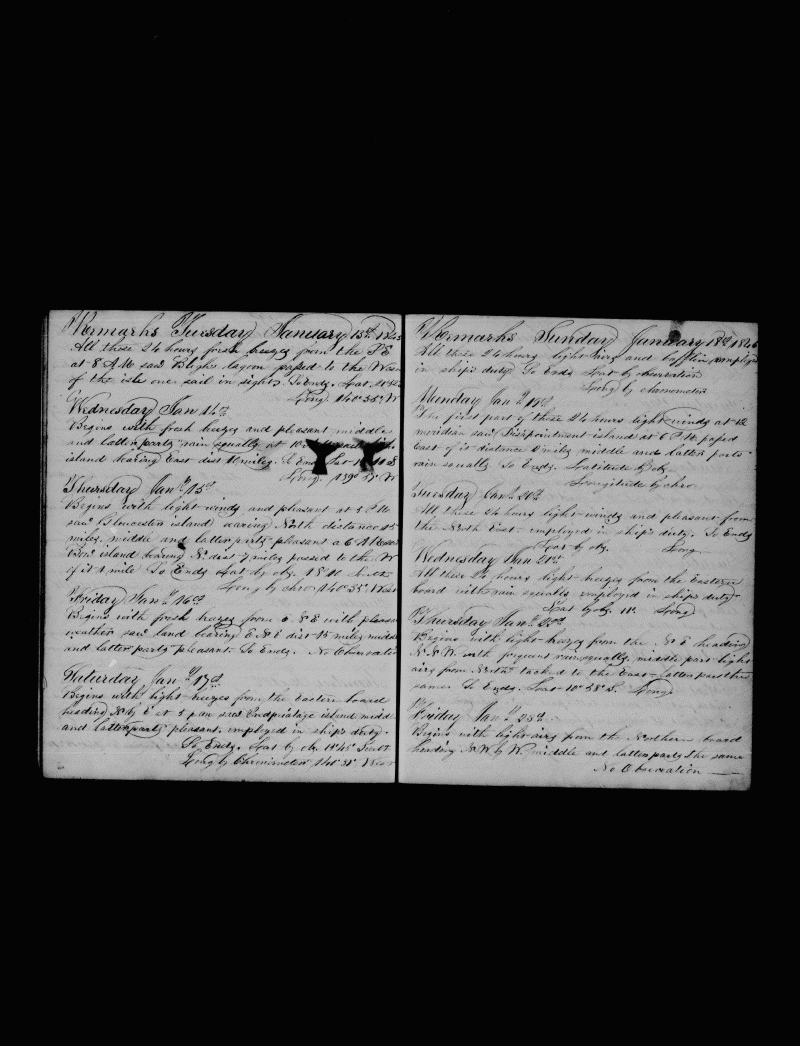 Remarks Tuesday January 13th 1846
All these 24 hours fresh breezes from the S E
at 8 A M saw Blighs lagoon passed to the West
of the isle one sail in sight. So Ends. Lat.
Long 140° 35' W
Wednesday Jan 14th
Begins with fresh breezes and pleasant middle
and latter parts rain squally at 10
island bearing East dist miles. So Ends Lat
Long. 139° W
Thursday Jany 15th
Begins with light winds and pleasant at 5 P M
saw Gloucester island bearing North distance 15
miles, middle and latter parts pleasant at 6 A M saw
Bow island bearing N. dist 7 miles passed to the W
of it 1 mile So Ends Lat by obs. 18° South
Long by chro 140° 55' West
Friday Jany 16th
Begins with fresh breezes from E N E with pleasant
weather saw land bearing E N E dist 15 miles middle
and latter parts pleasant. So Ends. No Observation
Saturday Jany 17th
Begins with light breezes from the Eastern board
heading N by E at 5 p.m saw island midd
and latter parts pleasant, employed in ship's duty.
So Ends. Lat by obs 45' South
Long by Chronometer 140° West
Remarks Sunday January 18th 1846
All these 24 hours light airs and baffling employed
in ship's duty. So Ends Lat by observation
Long by chronometer
Monday Jany 19th
The first part of these 24 hours light winds at 12
meridian saw Disipointment island at 6 P M passed
East of it distance miles middle and latter parts
rain squalls So Ends. Latitude by obs.
Longitude by chro.
Tuesday Jany 20th
All these 24 hours light winds and pleasant from
the North East employed in ship's duty. So Ends
Lat by obs. Long
Wednesday Jan 21st
All these 24 hours light breezes from the Eastern
board with rain squalls employed in ships duty
Lat by obs. 11° Long
Thursday Jany 22d
Begins with light breezes from the N E heading
N. N. W. with frequent rain squalls, middle part light
airs from North tacked to the East latter part the
same So Ends, Lat 10° 58' S. Long
Friday Jany 23d
Begins with light airs from the Northern board
heading N W by W. middle and latter parts the same
No Observation